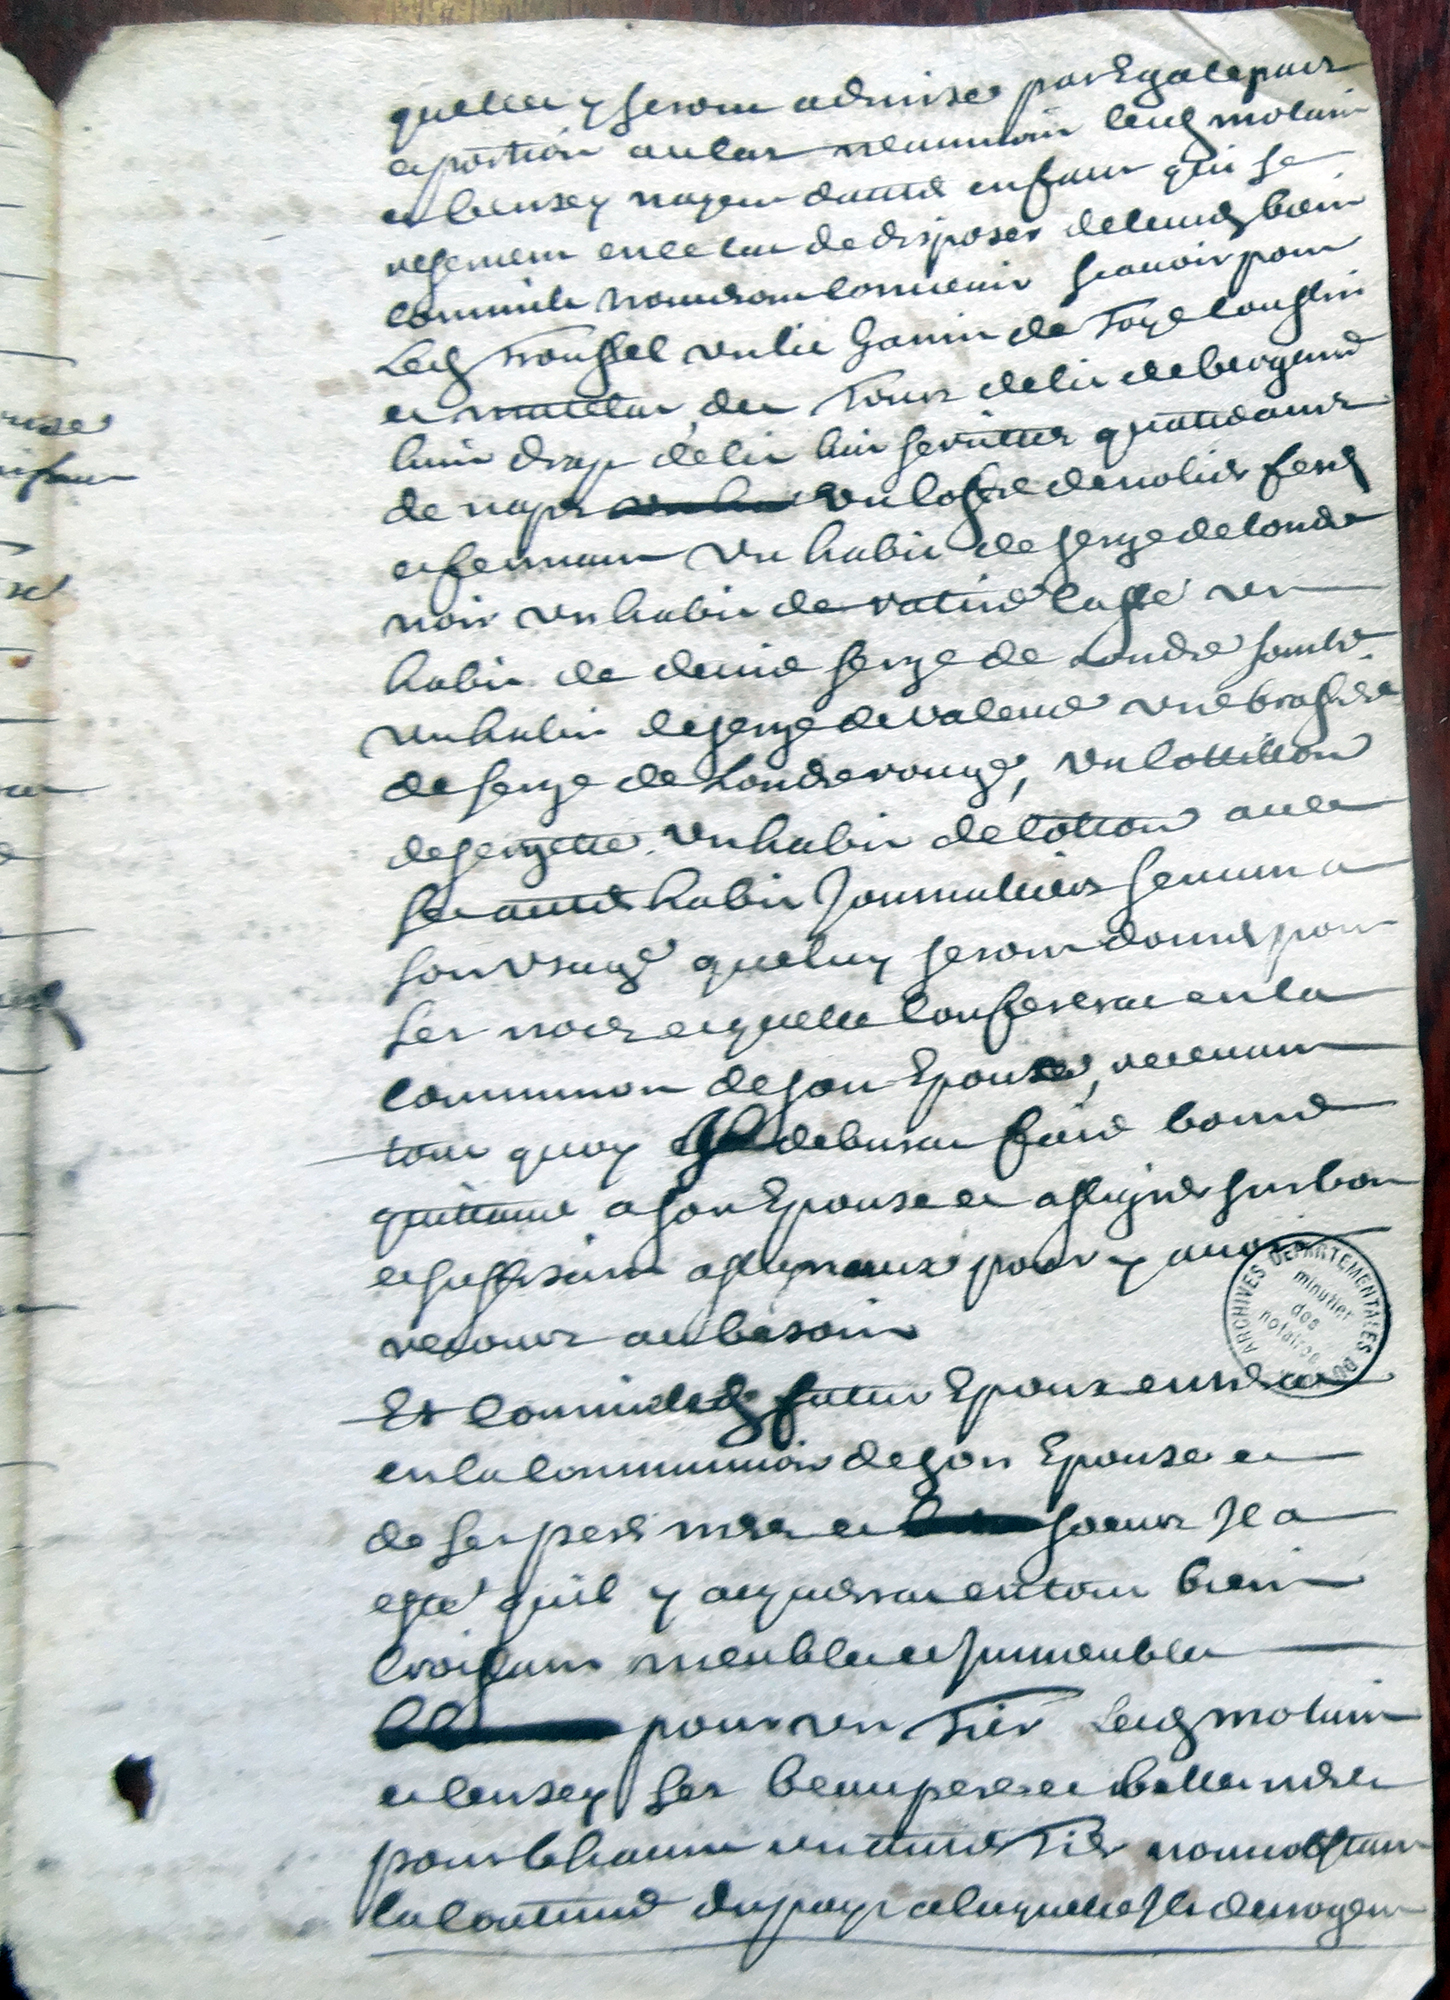 quelles y seront admises par Egale pars
et portion au cas neammoin lesd molain
et censey nayent dautre enfans qui se
reservent en ce cas de disposer de leursd bien
comme ils voudront convenir scavoir pour
Led Troussel un lit garnis de Toye coussin
et mattelas, des Tours de lit de bergame
huit drap de lit six serviettes quattre aunes
de napes un coffre de noiier ferré
et fermant un habit de serge de londre
noir un habit de ratine caffé un
habit de demie serge de Londre sombre
un habit de serge de valence une brassiere
de serge de Londre rouge, un cottillon
de sergette un habit de cotton avec
ses autres habits Journalliers servans a
son usage quelui seront donnés pour
ses noces et quelle conferera en la
communion de son Epoux, recevant
tout quoy Il debvra faire bonne
quittance a son Epouse et assigner sur bon
et suffisant assignaux pour y avoir
recours au besoin
Et comme led futur Epoux entrera
en la communion de son Epouse et
de ses pere mere et soeurs Il a
esté quil y acquerrat en tous bien
croissans meubles et Immeubles
pour un Tier Lesd molain
et censey ses beaupere et belle mere
pour chacun un autre Tier nonnobstant
la coutume du pays a laquelle Ils derrogent
ARCHIVES DEPARTEMENTALES DU
minutier
des
notaires